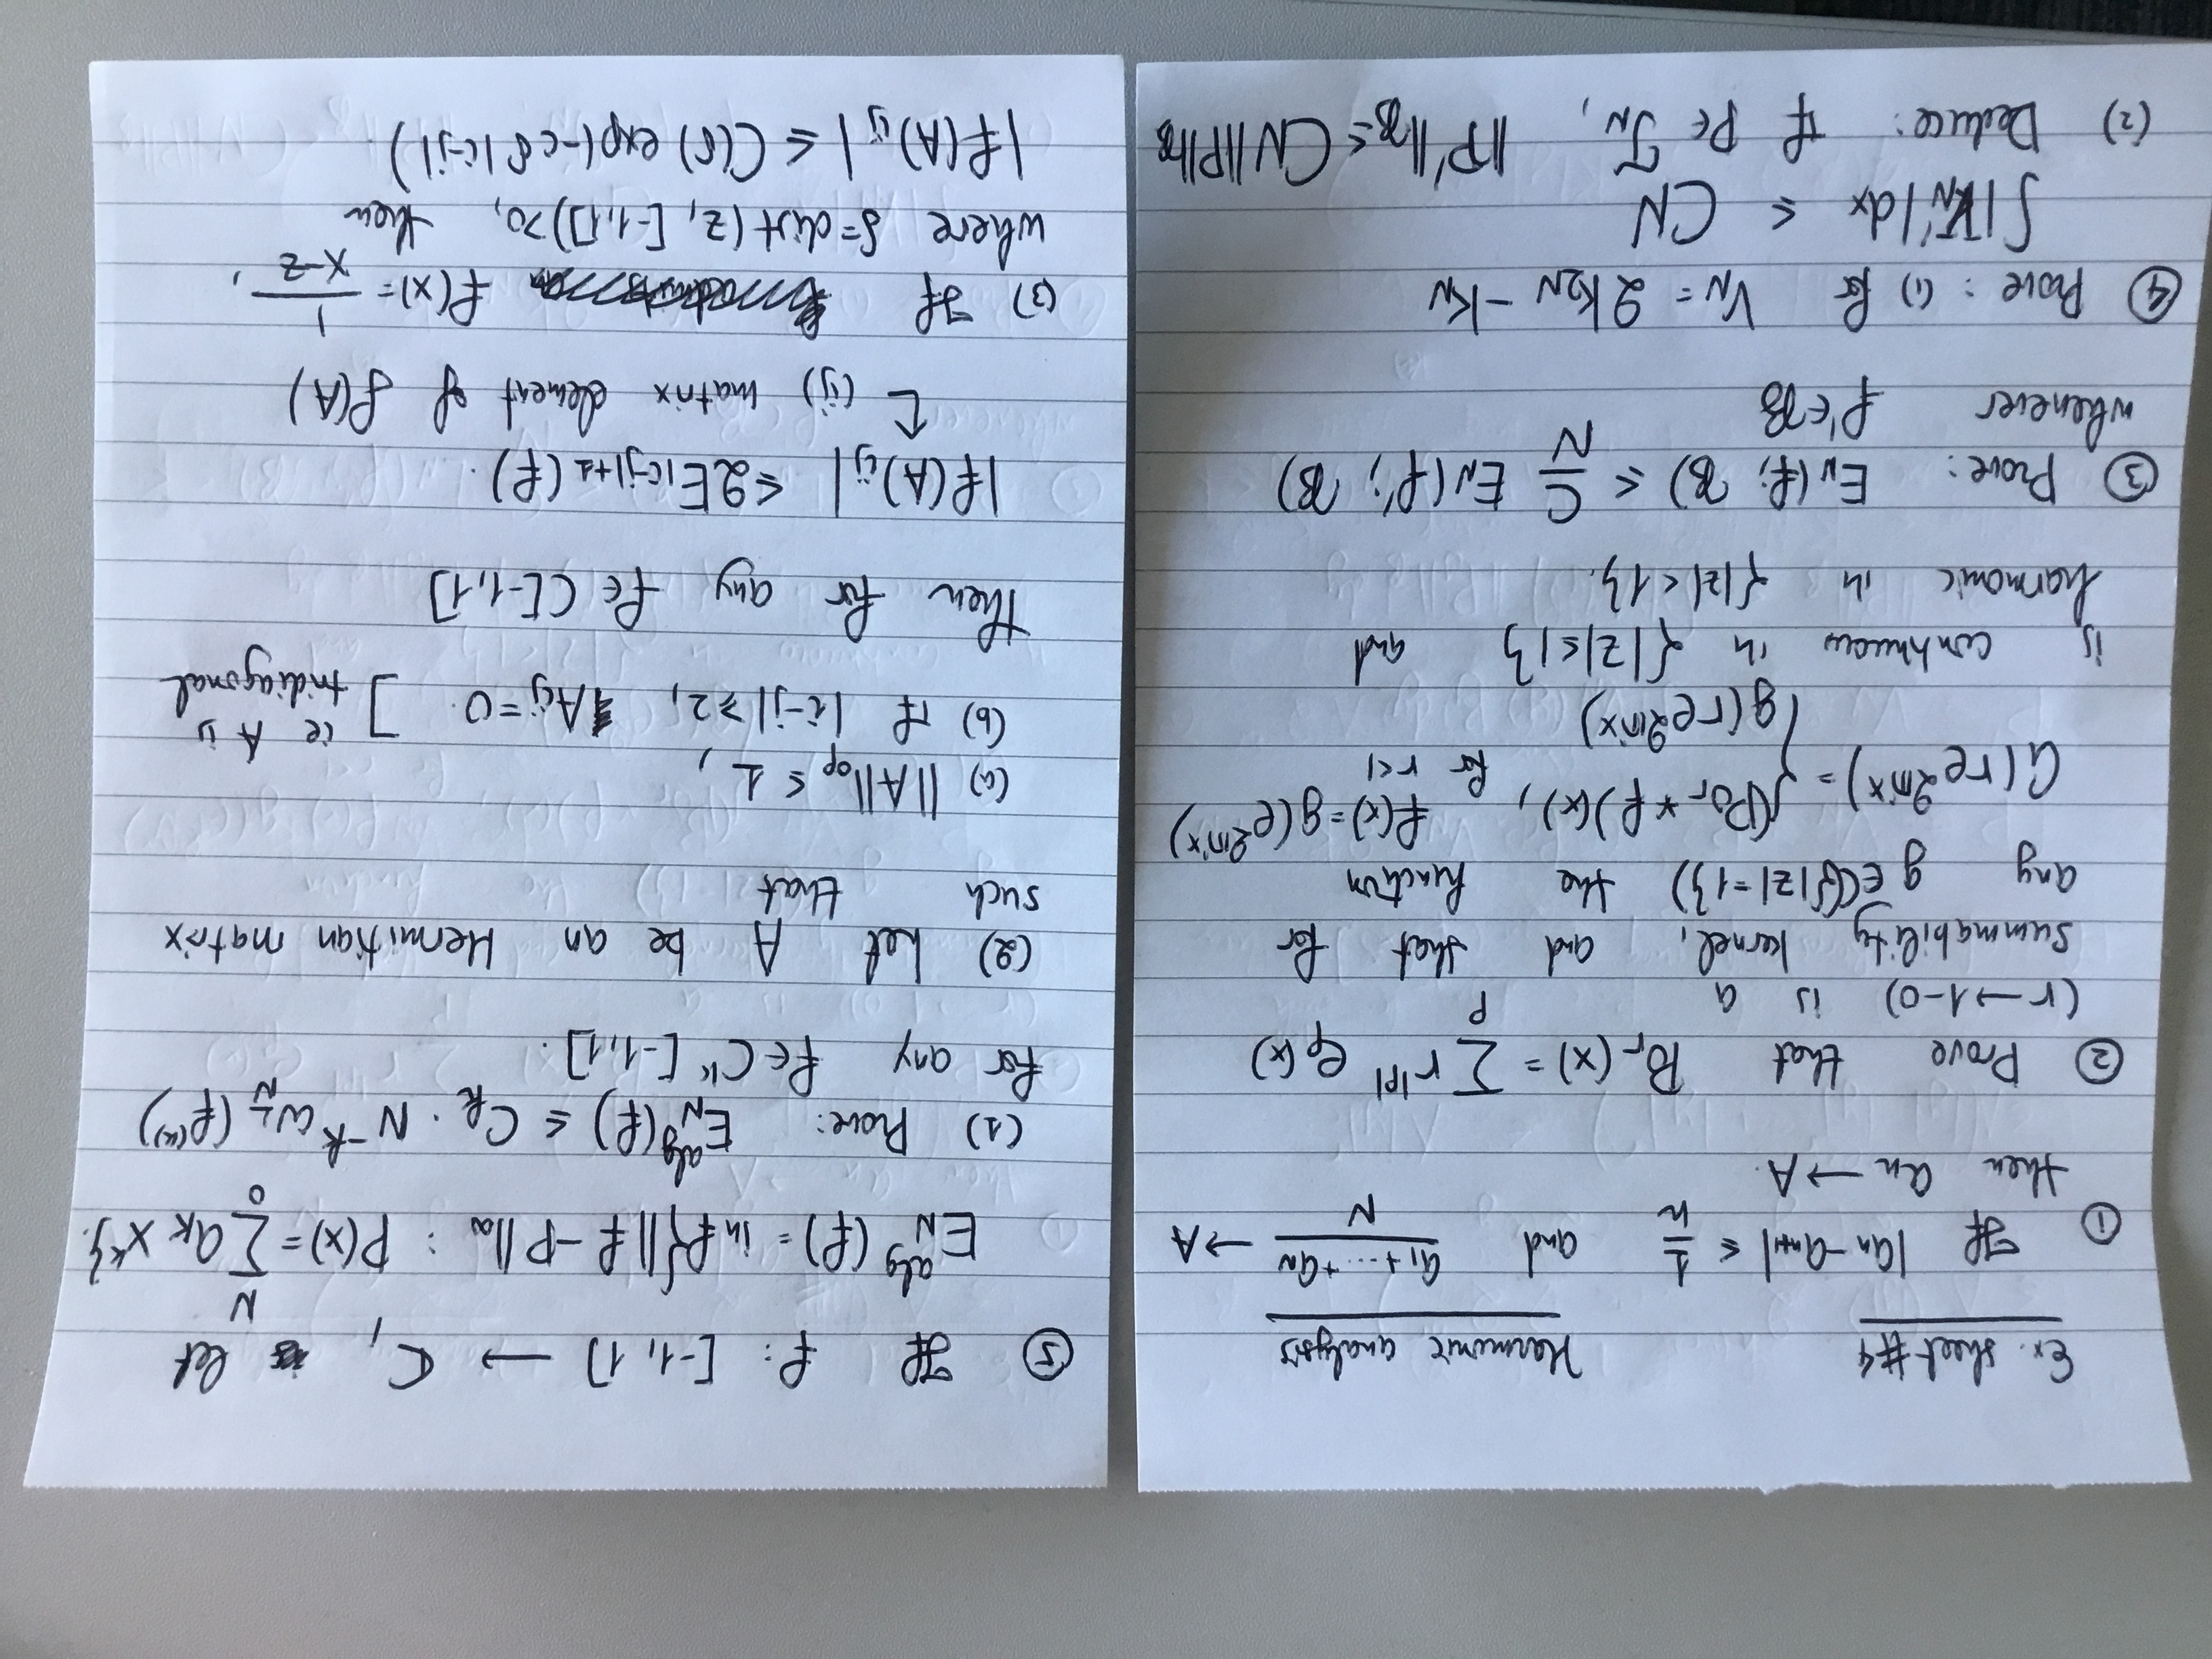 Ex. sheet #4 Harmonic analysis
① If |an - an+1| ≤ 1/n and (a1 + ... + aN)/N → A
then an → A.
② Prove that Pr(x) = Σp r^|p| ep(x)
(r → 1-0) is a
summability kernel, and that for
any g ∈ C({|z|=1}) the function
G(re^2πix) = { (Pr * f)(x), f(x) = g(e^2πix) for r<1
g(re^2πix)
is continuous in {|z| ≤ 1} and
harmonic in {|z| < 1}.
③ Prove: EN(f; B) ≤ C/N EN(f'; B)
whenever f' ∈ B
④ Prove: (1) for VN = 2K2N - KN
∫|KN'|dx ≤ CN
(2) Deduce: if P ∈ TN, ||P'||B ≤ CN||P||B
⑤ If f: [-1,1] → C, let
EN^alg(f) = inf{||f-P||∞ : P(x) = Σ0^N ak x^k}.
(1) Prove: EN^alg(f) ≤ Ck · N^-k ω1/N(f^(k))
for any f ∈ C^k[-1,1].
(2) Let A be an Hermitian matrix
such that
(a) ||A||op ≤ 1,
(b) if |i-j| ≥ 2, Aij = 0. ] ie A is tridiagonal
Then for any f ∈ C[-1,1]
|f(A)ij| ≤ 2E|i-j|+1(f).
↑ (ij) matrix element of f(A)
(3) If f(x) = 1/(x-z),
where δ = dist(z, [-1,1]) > 0, then
|f(A)ij| ≤ C(δ) exp(-cδ|i-j|).